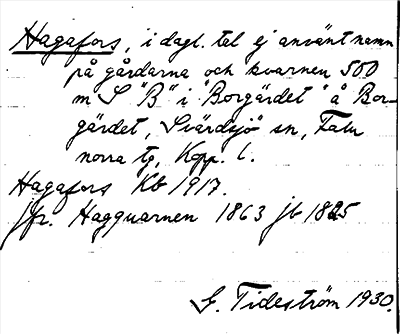 Hagafors, i dagl. tal ej använt namn
på gårdarna och kvarnen 500
m S "B" i "Borgärdet" å Bor-
gärdet, Svärdsjö sn, Falu
norra tg, Kopp. l.
Hagafors Kb 1917.
jfr. Hagquarnen 1863 jb 1825
G. Tideström 1930.